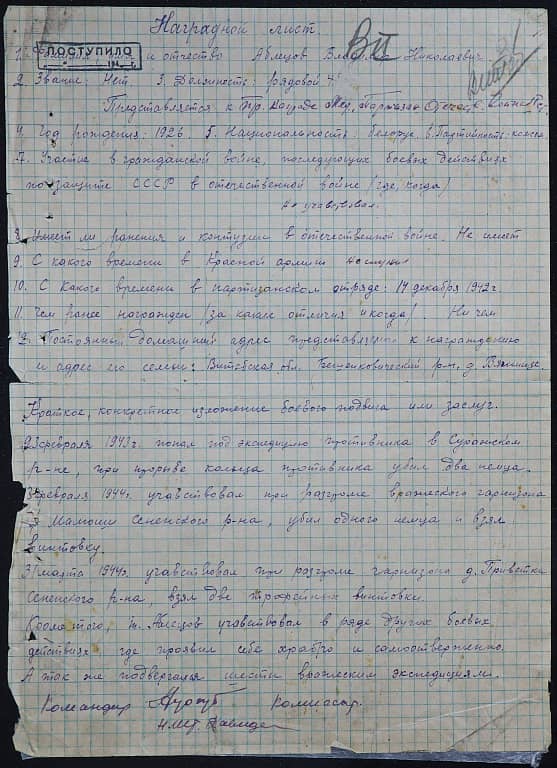 Наградной лист
ПОСТУПИЛО
и отчество Аблецов Николаевич
2. Звание: Нет. 3. Должность: рядовой
Представляется к Пр. награде Мед. Партизан Отечес.
4. год рождения: 1926. 5. Национальность: белорус, 6. Партийность:
7. Участие в гражданской войне, последующих боевых действиях
по защите СССР в отечественной войне /где, когда/
Не участвовал.
8. Имеет ли ранения и контузии в отечественной войне. Не имеет
9. С какого времени в Красной армии не служил
10. С какого времени в партизанском отряде: 14 декабря 1942 г.
11. Чем ранее награжден /за какие отличия и когда/. Ни чем
12. Постоянный домашний адрес представляемого к награждению
и адрес его семьи: Витебская обл. Бешенковический р-н, д.
Краткое, конкретное изложение боевого подвига или заслуг.
февраля 1943 г. попал под экспедицию противника в Суражском
р-не, при прорыве кольца противника убил два немца.
февраля 1944 г. учавствовал при разгроме вражеского гарнизона
Сененского р-на, убил одного немца и взял
винтовку.
марта 1944 г. учавствовал при разгроме гарнизона д.
Сененского р-на, взял две трофейных винтовки.
Кроме того, т. Аблецов учавствовал в ряде других боевых
действиях где проявил себя храбро и самоотверженно.
А так же подвергался шести вражеским экспедициям.
Командир Комиссар.